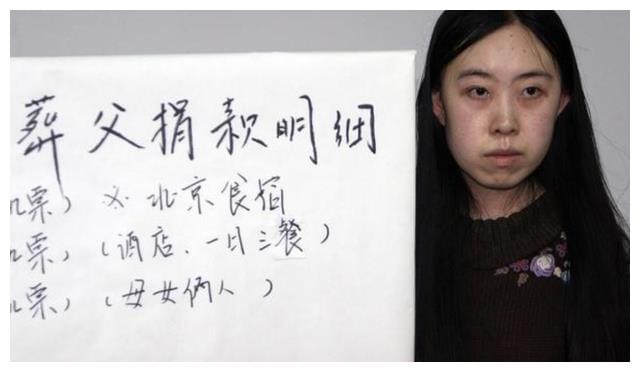 葬父捐款明细
票) 北京食宿
票) (酒店、一日三餐)
票) (母女俩人)